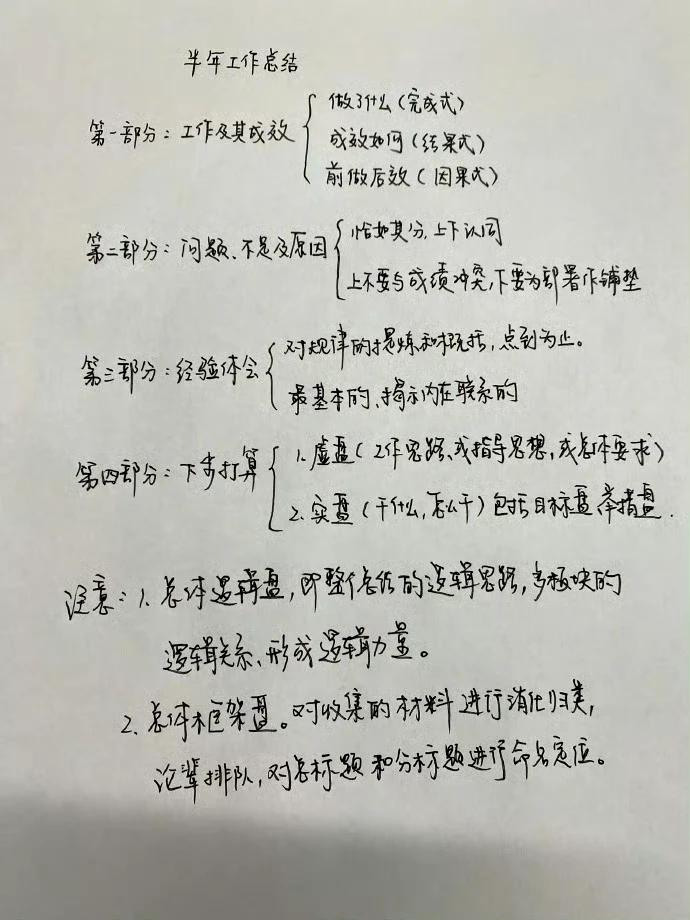 半年工作总结
做了什么(完成式)
第一部分:工作及其成效
成效如何(结果式)
前做后效(因果式)
恰如其分,上下认同
第二部分:问题、不足及原因
上不要与成绩冲突,下要为部署作铺垫
对规律的提炼和概括,点到为止。
第三部分:经验体会
最基本的、揭示内在联系的
1.虚盘(工作思路、或指导思想,或总体要求)
第四部分:下步打算
2.实盘(干什么,怎么干)包括目标盘 举措盘.
注意:1.总体逻辑盘,即整个总结的逻辑思路,多板块的
逻辑关系、形成逻辑力量。
2.总体框架盘。对收集的材料进行消化归类,
论辈排队,对总标题和分标题进行命名定位。